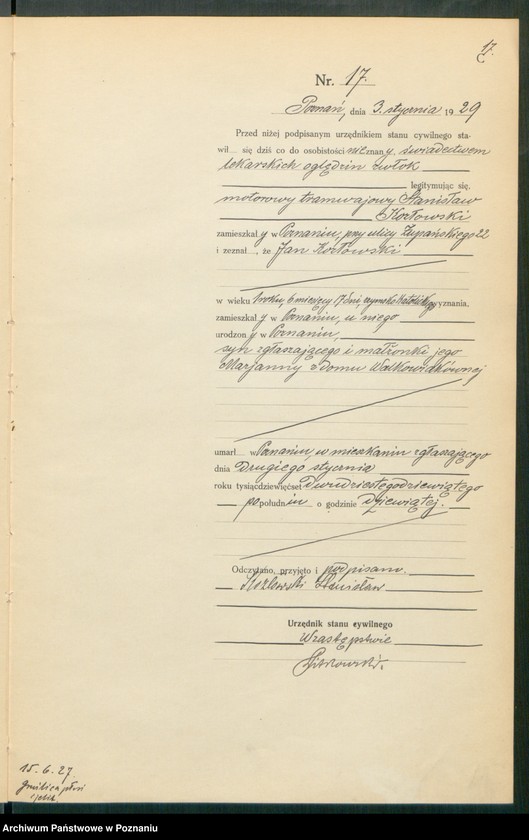 17.
C
Nr. 17.
Poznań, dnia 3. stycznia 1929
Przed niżej podpisanym urzędnikiem stanu cywilnego sta-
wił... się dziś co do osobistości nieznany, świadectwem
lekarskich oględzin zwłok
legitymując się,
motorowy tramwajowy Stanisław
Kozłowski
zamieszkały w Poznaniu, przy ulicy Żupańskiego 22
i zeznał..., że Jan Kozłowski
w wieku 1 roku, 6 miesięcy 17 dni, rzymsko katolickiego wyznania,
zamieszkały w Poznaniu, u niego
urodzony w Poznaniu,
syn zgłaszającego i małżonki jego
Marjanny z domu Walkowiakównej
umarł... w Poznaniu, w mieszkaniu zgłaszającego
dnia Drugiego stycznia
roku tysiącdziewięćset Dwudziestegodziewiątego
po południu o godzinie Dziewiątej.
Odczytano, przyjęto i podpisano.
Kozłowski Stanisław
Urzędnik stanu cywilnego
W zastępstwie
15. 6. 27.
Archiwum Państwowe w Poznaniu